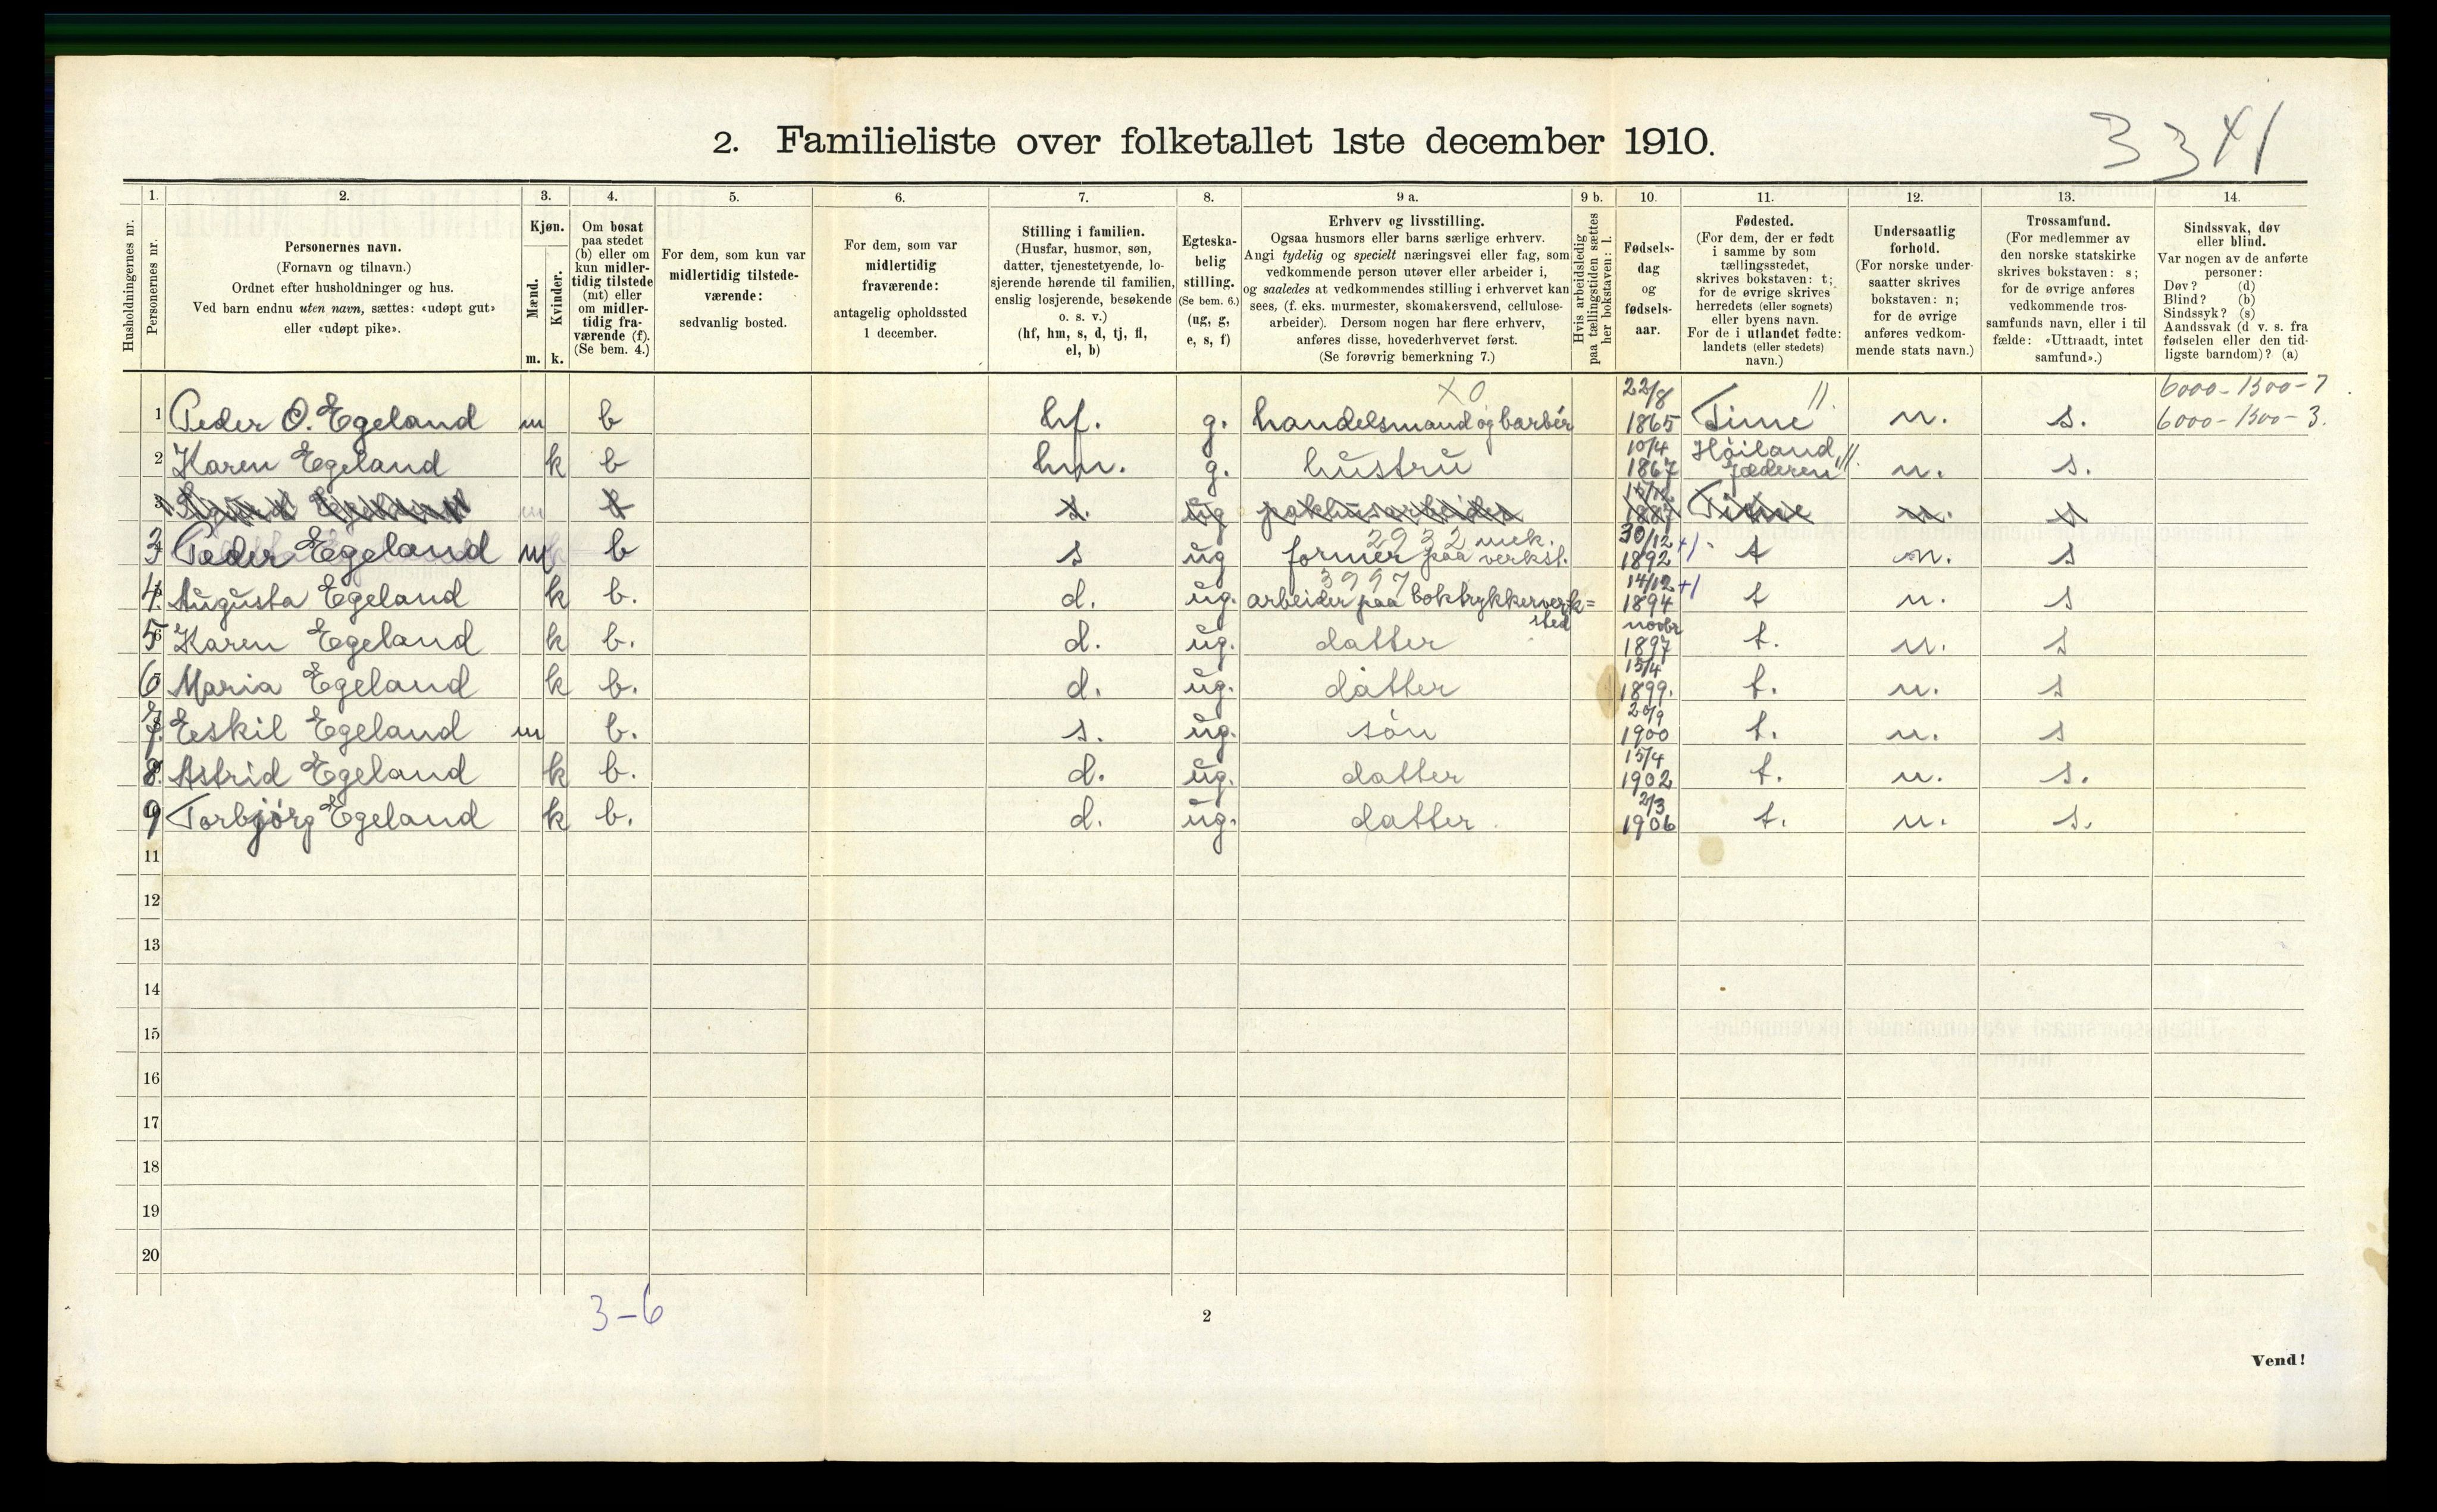 2. Familieliste over folketallet 1ste december 1910.
3341
1. 2. 3. 4. 5. 6. 7. 8. 9 a. 9 b. 10. 11. 12. 13. 14.
Husholdningernes nr.
Personernes nr.
Personernes navn.
(Fornavn og tilnavn.)
Ordnet efter husholdninger og hus.
Ved barn endnu uten navn, sættes: «udøpt gut»
eller «udøpt pike».
Kjøn.
Mænd.
m.
Kvinder.
k.
Om bosat
paa stedet
(b) eller om
kun midler-
tidig tilstede
(mt) eller
om midler-
tidig fra-
værende (f).
(Se bem. 4.)
For dem, som kun var
midlertidig tilstede-
værende:
sedvanlig bosted.
For dem, som var
midlertidig
fraværende:
antagelig opholdssted
1 december.
Stilling i familien.
(Husfar, husmor, søn,
datter, tjenestetyende, lo-
sjerende hørende til familien,
enslig losjerende, besøkende
o. s. v.)
(hf, hm, s, d, tj, fl,
el, b)
Egteska-
belig
stilling.
(Se bem. 6.)
(ug, g,
e, s, f)
Erhverv og livsstilling.
Ogsaa husmors eller barns særlige erhverv.
Angi tydelig og specielt næringsvei eller fag, som
vedkommende person utøver eller arbeider i,
og saaledes at vedkommendes stilling i erhvervet kan
sees, (f. eks. murmester, skomakersvend, cellulose-
arbeider). Dersom nogen har flere erhverv,
anføres disse, hovederhvervet først.
(Se forøvrig bemerkning 7.)
Hvis arbeidsledig
paa tællingstiden sættes
her bokstaven: l.
Fødsels-
dag
og
fødsels-
aar.
Fødested.
(For dem, der er født
i samme by som
tællingsstedet,
skrives bokstaven: t;
for de øvrige skrives
herredets (eller sognets)
eller byens navn.
For de i utlandet fødte:
landets (eller stedets)
navn.)
Undersaatlig
forhold.
(For norske under-
saatter skrives
bokstaven: n;
for de øvrige
anføres vedkom-
mende stats navn.)
Trossamfund.
(For medlemmer av
den norske statskirke
skrives bokstaven: s;
for de øvrige anføres
vedkommende tros-
samfunds navn, eller i til-
fælde: «Uttraadt, intet
samfund».)
Sindssvak, døv
eller blind.
Var nogen av de anførte
personer:
Døv? (d)
Blind? (b)
Sindssyk? (s)
Aandssvak (d v. s. fra
fødselen eller den tid-
ligste barndom)? (a)
XO 22/8 11. 6000-1500-7
1 Peder O. Egeland m b hf. g. handelsmand og barbér 1865 Time n. s. 6000-1500-3.
10/4 Höiland, 11.
2 Karen Egeland k b hm. g. hustru 1867 Jæderen n. s.
3 Egeland m b s. ug pakhusarbeider 1887 Time n. s
2932 mek. 30/12
3 Peder Egeland m b s ug former paa verkst. 1892 +1 t n. s
3997 14/12 +1
4. Augusta Egeland k b. d. ug. arbeider paa boktrykkerverk= 1894 t n. s
sted novbr
5 Karen Egeland k b. d. ug. datter 1897 t. n. s
15/4
6 Maria Egeland k b. d. ug. datter 1899. t. n. s
20/9
7. Eskil Egeland m b. s. ug. sön 1900 t. n. s
15/4
8. Astrid Egeland k b. d. ug. datter 1902 t. n. s.
2/3
9 Torbjörg Egeland k b. d. ug. datter 1906 t. n. s.
11
12
13
14
15
16
17
18
19
20
3-6
2
Vend!